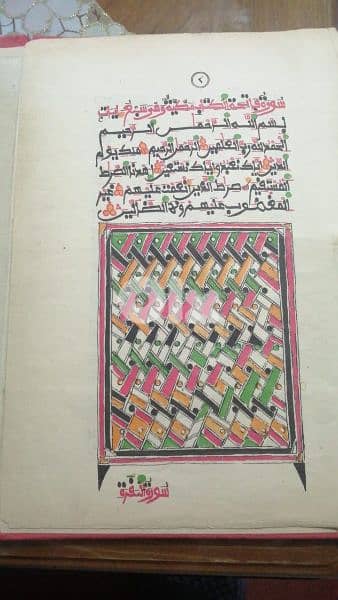 ٢
سورة فاتحة الكتاب مكية وهي سبع
بسم الله الرحمن الرحيم
الحمد لله رب العلمين الرحمن الرحيم ملك يوم
الدين إياك نعبد وإياك نستعين اهدنا الصرط
المستقيم صرط الذين أنعمت عليهم غير
المغضوب عليهم ولا الضالين
سورة البقرة